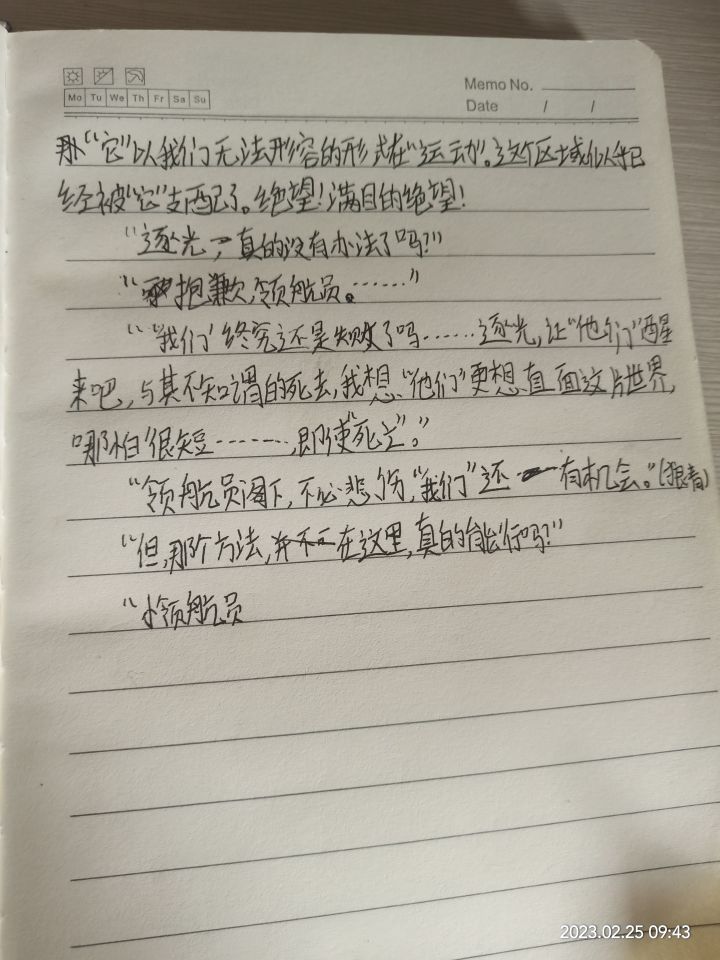 Memo No.
Mo Tu We Th Fr Sa Su
Date / /
那“它”以我们无法形容的形式在“运动”。这个区域似乎已
经被“它”支配了。绝望!满目的绝望!
“逐光,真的没有办法了吗?”
“抱歉,领航员。……”
“‘我们’终究还是失败了吗……逐光,让“他们”醒
来吧,与其不知所谓的死去,我想“他们”更想直面这片世界,
哪怕很短……,即使“死亡”。”
“领航员阁下,不必悲伤,“我们”还有机会。”(狠毒)
“但,那个方法,在这里,真的能行吗?”
“小领航员
2023.02.25 09:43